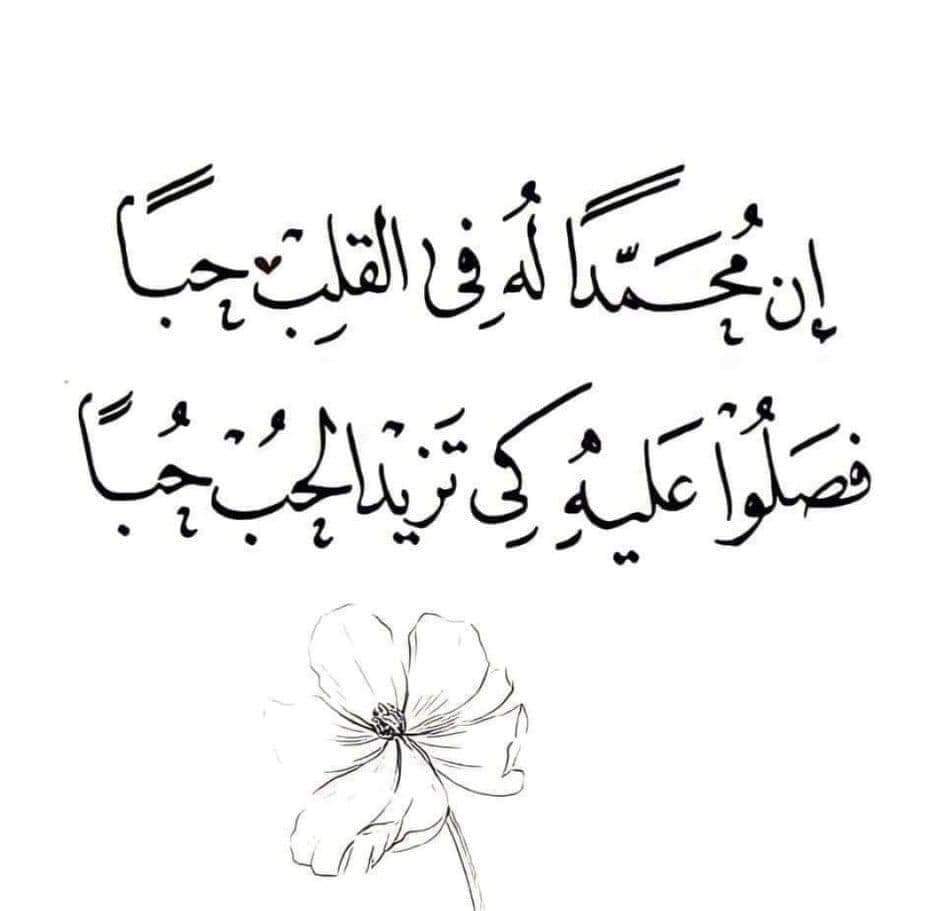 إن مُحَمَّدًا لهُ فِى القلِبْ حباً
فصَلُوْا عَليهُِ كِى تَزيْدا لحُبْ حُباً